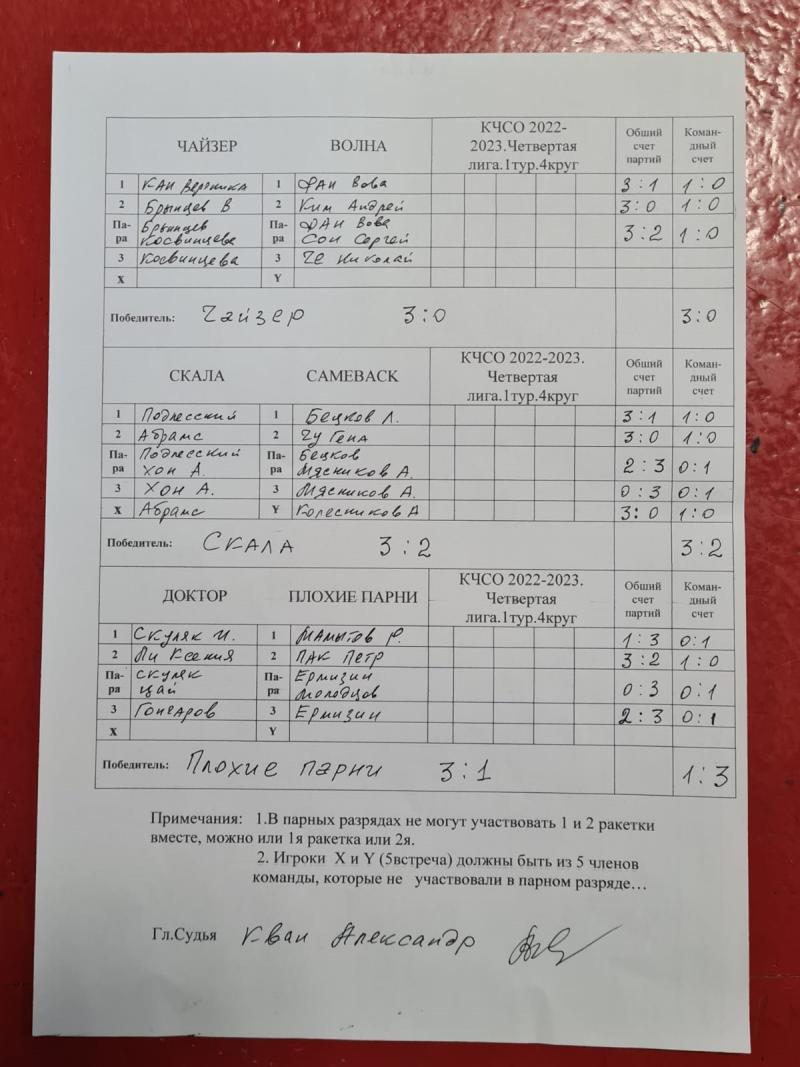 ЧАЙЗЕР ВОЛНА КЧСО 2022-2023.Четвертая лига.1тур.4круг Обший счет партий Коман-дный счет
1 Кан Вероника 1 Фан Вова 3:1 1:0
2 Брынцев В 2 Ким Андрей 3:0 1:0
Па-ра Брынцев Косвинцева Па-ра Фан Вова Сон Сергей 3:2 1:0
3 Косвинцева 3 Че Николай
X Y
Победитель: Чайзер 3:0 3:0
СКАЛА CAMEBACK КЧСО 2022-2023. Четвертая лига.1тур.4круг Обший счет партий Коман-дный счет
1 Подлесский 1 Бецков Л. 3:1 1:0
2 Абрамс 2 Чу Гена 3:0 1:0
Па-ра Подлесский Хон А. Па-ра Бецков Мясников А. 2:3 0:1
3 Хон А. 3 Мясников А. 0:3 0:1
X Абрамс Y Колесников А 3:0 1:0
Победитель: СКАЛА 3:2 3:2
ДОКТОР ПЛОХИЕ ПАРНИ КЧСО 2022-2023. Четвертая лига.1тур.4круг Обший счет партий Коман-дный счет
1 Скуляк И. 1 Мамытов Р. 1:3 0:1
2 Ли Ксения 2 Пак Петр 3:2 1:0
Па-ра Скуляк Цай Па-ра Ермизин Молодцов 0:3 0:1
3 Гончаров 3 Ермизин 2:3 0:1
X Y
Победитель: Плохие парни 3:1 1:3
Примечания: 1.В парных разрядах не могут участвовать 1 и 2 ракетки
вместе, можно или 1я ракетка или 2я.
2. Игроки X и Y (5встреча) должны быть из 5 членов
команды, которые не участвовали в парном разряде…
Гл.Судья Кван Александр